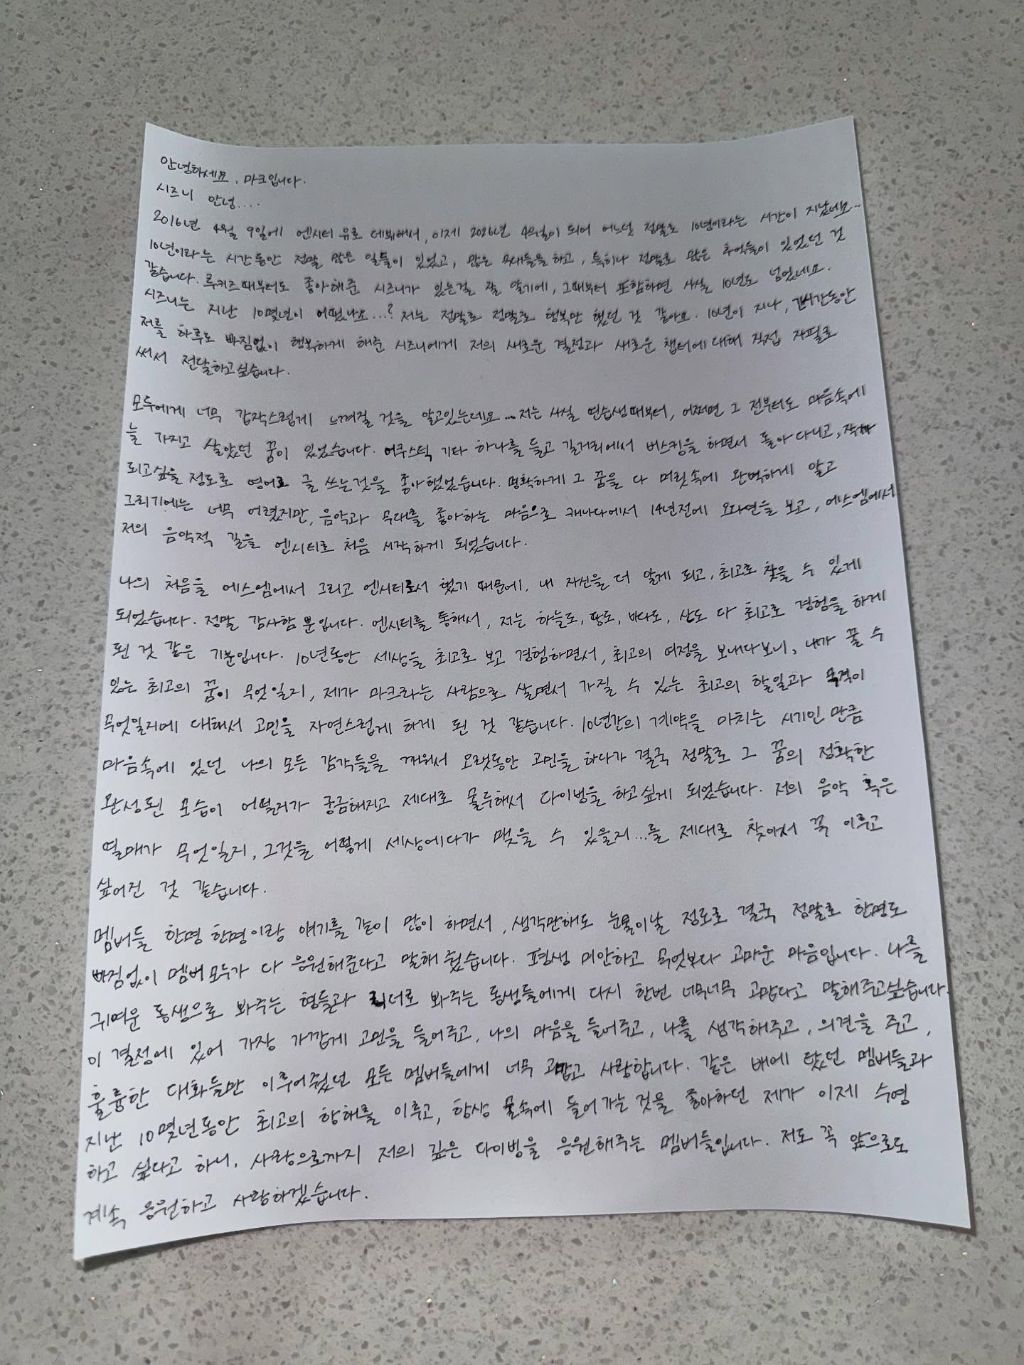 안녕하세요, 마크입니다.
시즈니 안녕....
2016년 4월 9일에 엔시티 유로 데뷔해서, 이제 2026년 4월이 되어 어느덧 정말로 10년이라는 시간이 지났네요...
10년이라는 시간동안 정말 많은 일들이 있었고, 많은 무대들을 하고, 특히나 정말로 많은 추억들이 있었던 것
같습니다. 루키즈때부터도 좋아해준 시즈니가 있는걸 잘 알기에, 그때부터 포함하면 사실 10년도 넘었네요.
시즈니는 지난 10몇년이 어땠나요...? 저는 정말로 정말로 행복만 했던 것 같아요. 10년이 지나, 긴시간동안
저를 하루도 빠짐없이 행복하게 해준 시즈니에게 저의 새로운 결정과 새로운 챕터에 대해 직접 자필로
써서 전달하고싶습니다.
모두에게 너무 갑작스럽게 느껴질 것을 알고있는데요...저는 사실 연습생때부터, 어쩌면 그 전부터도 마음속에
늘 가지고 살았던 꿈이 있었습니다. 어쿠스틱 기타 하나를 들고 길거리에서 버스킹을 하면서 돌아다니고, 작가
되고싶을 정도로 영어로 글 쓰는것을 좋아했었습니다. 명확하게 그 꿈을 다 머릿속에 완벽하게 알고
그리기에는 너무 어렸지만, 음악과 무대를 좋아하는 마음으로 캐나다에서 14년전에 오디션을 보고, 에스엠에서
저의 음악적 길을 엔시티로 처음 시작하게 되었습니다.
나의 처음을 에스엠에서 그리고 엔시티로서 했기 때문에, 내 자신을 더 알게 되고, 최고로 찾을 수 있게
되었습니다. 정말 감사할 뿐입니다. 엔시티를 통해서, 저는 하늘도, 땅도, 바다도, 산도 다 최고로 경험을 하게
된 것 같은 기분입니다. 10년동안 세상을 최고로 보고 경험하면서, 최고의 여정을 보내다보니, 내가 꿀 수
있는 최고의 꿈이 무엇일지, 제가 마크라는 사람으로 살면서 가질 수 있는 최고의 할일과 목적이
무엇일지에 대해서 고민을 자연스럽게 하게 된 것 같습니다. 10년간의 계약을 마치는 시기인 만큼
마음속에 있던 나의 모든 감각들을 깨워서 오랫동안 고민을 하다가 결국 정말로 그 꿈의 정확한
완성된 모습이 어떨지가 궁금해지고 제대로 몰두해서 다이빙을 하고싶게 되었습니다. 저의 음악 혹은
열매가 무엇일지, 그것을 어떻게 세상에다가 맺을 수 있을지...를 제대로 찾아서 꼭 이루고
싶어진 것 같습니다.
멤버들 한명 한명이랑 얘기를 같이 많이 하면서, 생각만해도 눈물이날 정도로 결국 정말로 한명도
빠짐없이 멤버 모두가 다 응원해준다고 말해 줬습니다. 평생 미안하고 무엇보다 고마운 마음입니다. 나를
귀여운 동생으로 봐주는 형들과 리더로 봐주는 동생들에게 다시 한번 너무너무 고맙다고 말해주고싶습니다.
이 결정에 있어 가장 가깝게 고민을 들어주고, 나의 마음을 들어주고, 나를 생각해주고, 의견을 주고,
훌륭한 대화들만 이루어줬던 모든 멤버들에게 너무 고맙고 사랑합니다. 같은 배에 탔던 멤버들과
지난 10몇년동안 최고의 항해를 이루고, 항상 물속에 들어가는 것을 좋아하던 제가 이제 수영
하고 싶다고 하니, 사랑으로까지 저의 깊은 다이빙을 응원해주는 멤버들입니다. 저도 꼭 앞으로도
계속 응원하고 사랑하겠습니다.